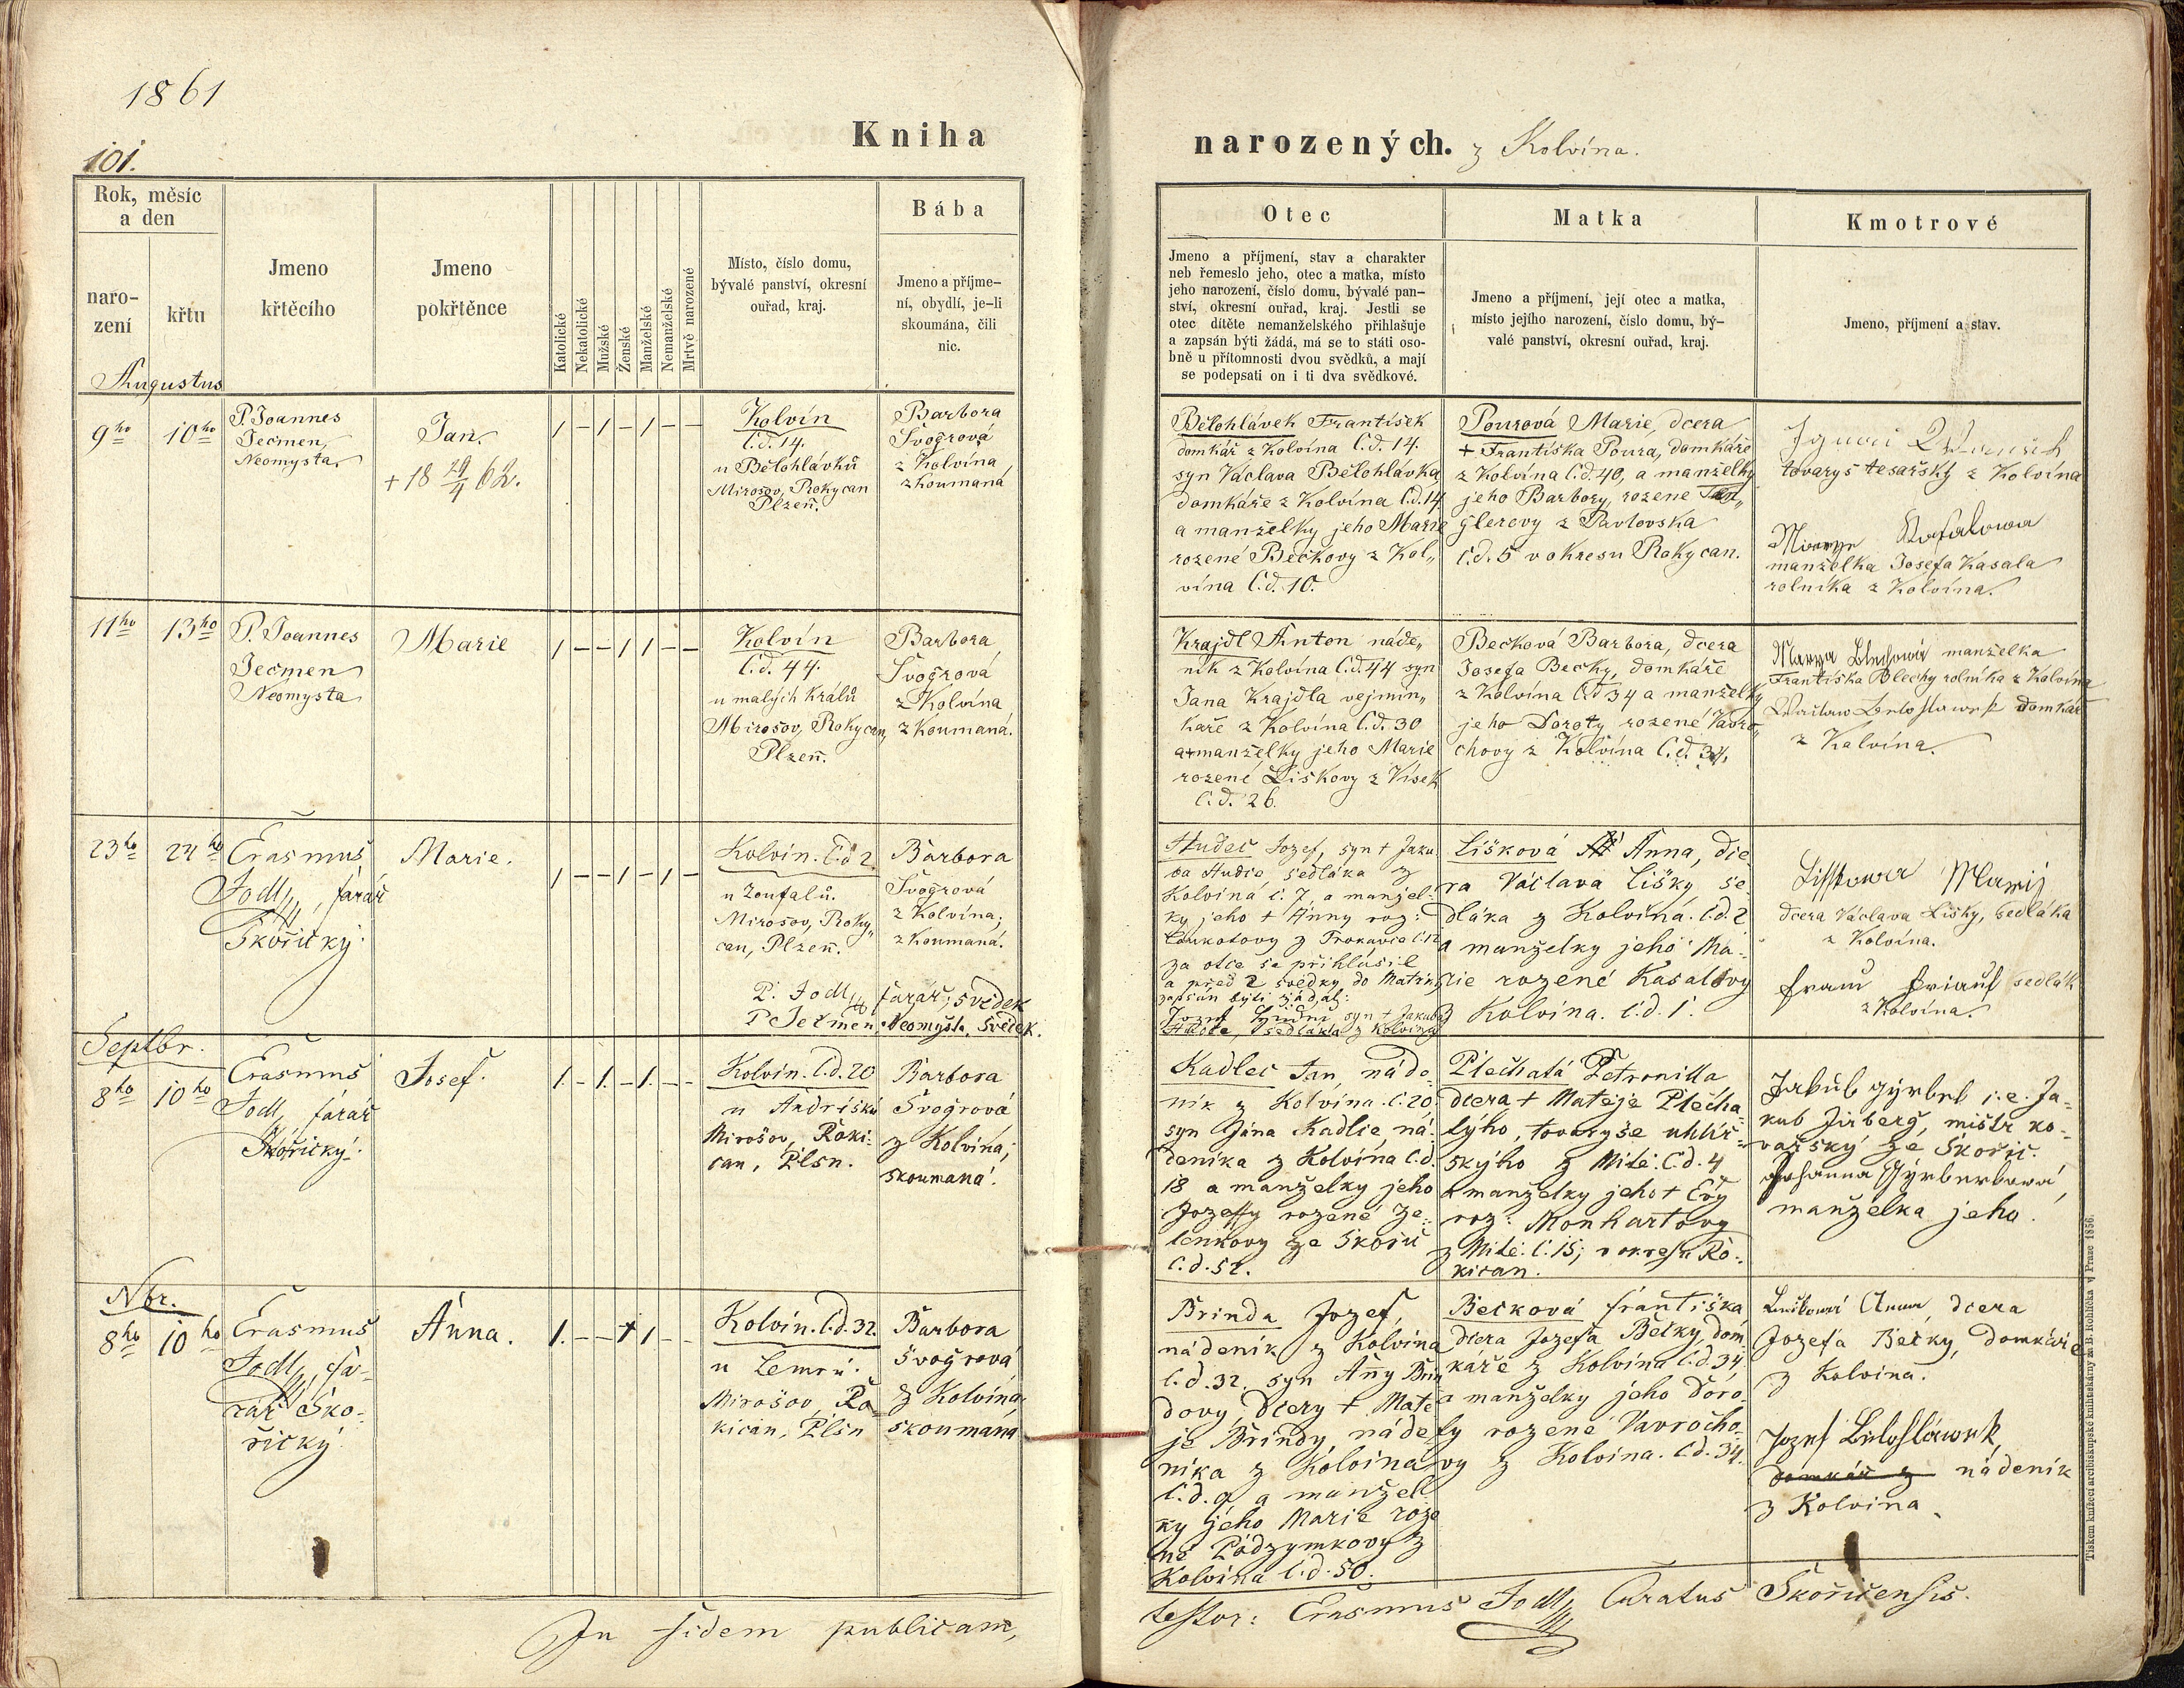 1861
101.
Kniha
narozených. z Kolvína.
Rok, měsíc
a den
naro-
zení
křtu
Jmeno
křtěcího
Jmeno
pokřtěnce
Katolické
Nekatolické
Mužské
Ženské
Manželské
Nemanželské
Mrtvě narozené
Místo, číslo domu,
bývalé panství, okresní
ouřad, kraj.
Bába
Jmeno a příjme-
ní, obydlí, je-li
skoumána, čili
nic.
Otec
Jmeno a příjmení, stav a charakter
neb řemeslo jeho, otec a matka, místo
jeho narození, číslo domu, bývalé pan-
ství, okresní ouřad, kraj. Jestli se
otec dítěte nemanželského přihlašuje
a zapsán býti žádá, má se to státi oso-
bně u přítomnosti dvou svědků, a mají
se podepsati on i ti dva svědkové.
Matka
Jmeno a příjmení, její otec a matka,
místo jejího narození, číslo domu, bý-
valé panství, okresní ouřad, kraj.
Kmotrové
Jmeno, příjmení a stav.
Augustus
9ho 10ho
P. Joannes
Ječmen,
Neomysta.
Jan.
+ 18 29/4 62.
/ - / - / - -
Kolvín
č.d. 14.
u Bělohlávků
Mirošov, Rokycan
Plzeň.
Barbora
Švogrová
z Kolvína,
zkoumaná
Bělohlávek František
domkář z Kolvína č.d. 14.
syn Václava Bělohlávka,
domkáře z Kolvína č.d. 14
a manželky jeho Marie
rozené Bečkovy z Kol„
vína č.d. 10.
Pourová Marie, dcera
+ Františka Poura, domkáře
z Kolvína č.d. 40, a manželky
jeho Barbory, rozené
glerovy z Pavlovska
č.d. 5 v okresu Rokycan.
tovaryš tesařský z Kolvína
manželka Josefa Kasala
rolníka z Kolvína.
11ho 13ho
P. Joannes
Ječmen
Neomysta
Marie
/ - - / / - -
Kolvín
č.d. 44.
u malých Králů
Mirošov, Rokycan,
Plzeň.
Barbora
Švogrová
z Kolvína
zkoumaná.
Krajdl Anton náde„
ník z Kolvína č.d. 44 syn
Jana Krajdla vejmin„
kaře z Kolvína č.d. 30
a manželky jeho Marie
rozené Liškovy z Vísek
č.d. 26.
Bečková Barbora, dcera
Josefa Bečky, domkáře
z Kolvína č.d. 34 a manželky
jeho Doroty, rozené Vavro„
chovy z Kolvína č.d. 34.
manželka
Františka Blechy rolníka z Kolvína
domkář
z Kolvína.
23ho 24ho
Erasmus
Jodl, farář
Skořický.
Marie.
/ - - / - / - -
Kolvín. č.d 2
u Zoufalů.
Mirosov, Roky„
can, Plzeň.
P. Jodl, farář, svědek
P Ječmen, Neomysta, svědek.
Barbora
Švogrová
z Kolvína;
zkoumaná.
Hudec Jozef, syn + Jaku
ba Hudce, sedláka z
Kolvína č. 7, a manžel-
ky jeho + Anny roz:
za otce se přihlásil
a před 2 svědky do Matriky
zapsán býti žádal:
syn + Jakuba
Hudce, sedláka z Kolvína
Lišková Anna, dce
ra Václava Lišky, se
dláka z Kolvína. č.d. 2
a manželky jeho Ma-
rie rozené Kasalovy
z Kolvína. č.d. 1.
dcera Václava Lišky, sedláka
z Kolvína.
sedlák
z Kolvína.
Septbr.
8ho 10ho
Erasmus
Jodl, farář
Skořický.
Josef.
/. - /. - /. - -
Kolvín. č.d. 20
u Andrišků
Mirošov, Roki-
can, Plsn.
Barbora
Švogrová
z Kolvína;
skoumaná.
Kadlec Jan, náde-
ník z Kolvína. č. 20.
syn Jána Kadlce, ná-
deníka z Kolvína č.d.
18 a manželky jeho
Jozefy rozené Ze-
lenkovy ze Skořic
č.d. 52.
Plechatá Petronilla
dcera + Matěje Plecha-
týho, tovaryše uhlíř-
skýho z Mitě. č.d. 4
a manželky jeho + Evy
roz: Monhartovy
z Mitě. č. 15; v okresu Ro-
kican.
Jakub Gýrbel i. e. Ja-
kub Jirberg, mistr ko-
vařský ze Skořic.
Johanna
manželka jeho.
Nbr.
8ho 10ho
Erasmus
Jodl, fa-
rář Sko-
řický.
Anna.
/. - - / / - -
Kolvín. č.d. 32.
u Lemrů.
Mirošov, Ro-
kican, Plsn
Barbora
Švogrová
z Kolvína,
skoumaná
Brinda Jozef,
nádeník z Kolvína
č.d. 32. syn Anny Brin
dovy, dcery + Matě
je Brindy, náde
níka z Kolvína
č.d. 9 a manžel
ky jeho Marie roze
né Podzymkovy z
Kolvína č.d. 50.
Bečková Františka
dcera Jozefa Bečky, dom
káře z Kolvína č.d. 34
a manželky jeho Doro-
ty rozené Vavrocho-
vy z Kolvína. č.d. 34.
Anna, dcera
Jozefa Bečky, domkáře
z Kolvína.
Jozef Bělohláwek,
domkář z nádeník
z Kolvína.
In fidem publicam,
testor: Erasmus Jodl, Curatus Skořicensis.
Tiskem knížecí arcibiskupské knihtiskárny za B. Rohlíčka v Praze 1856.